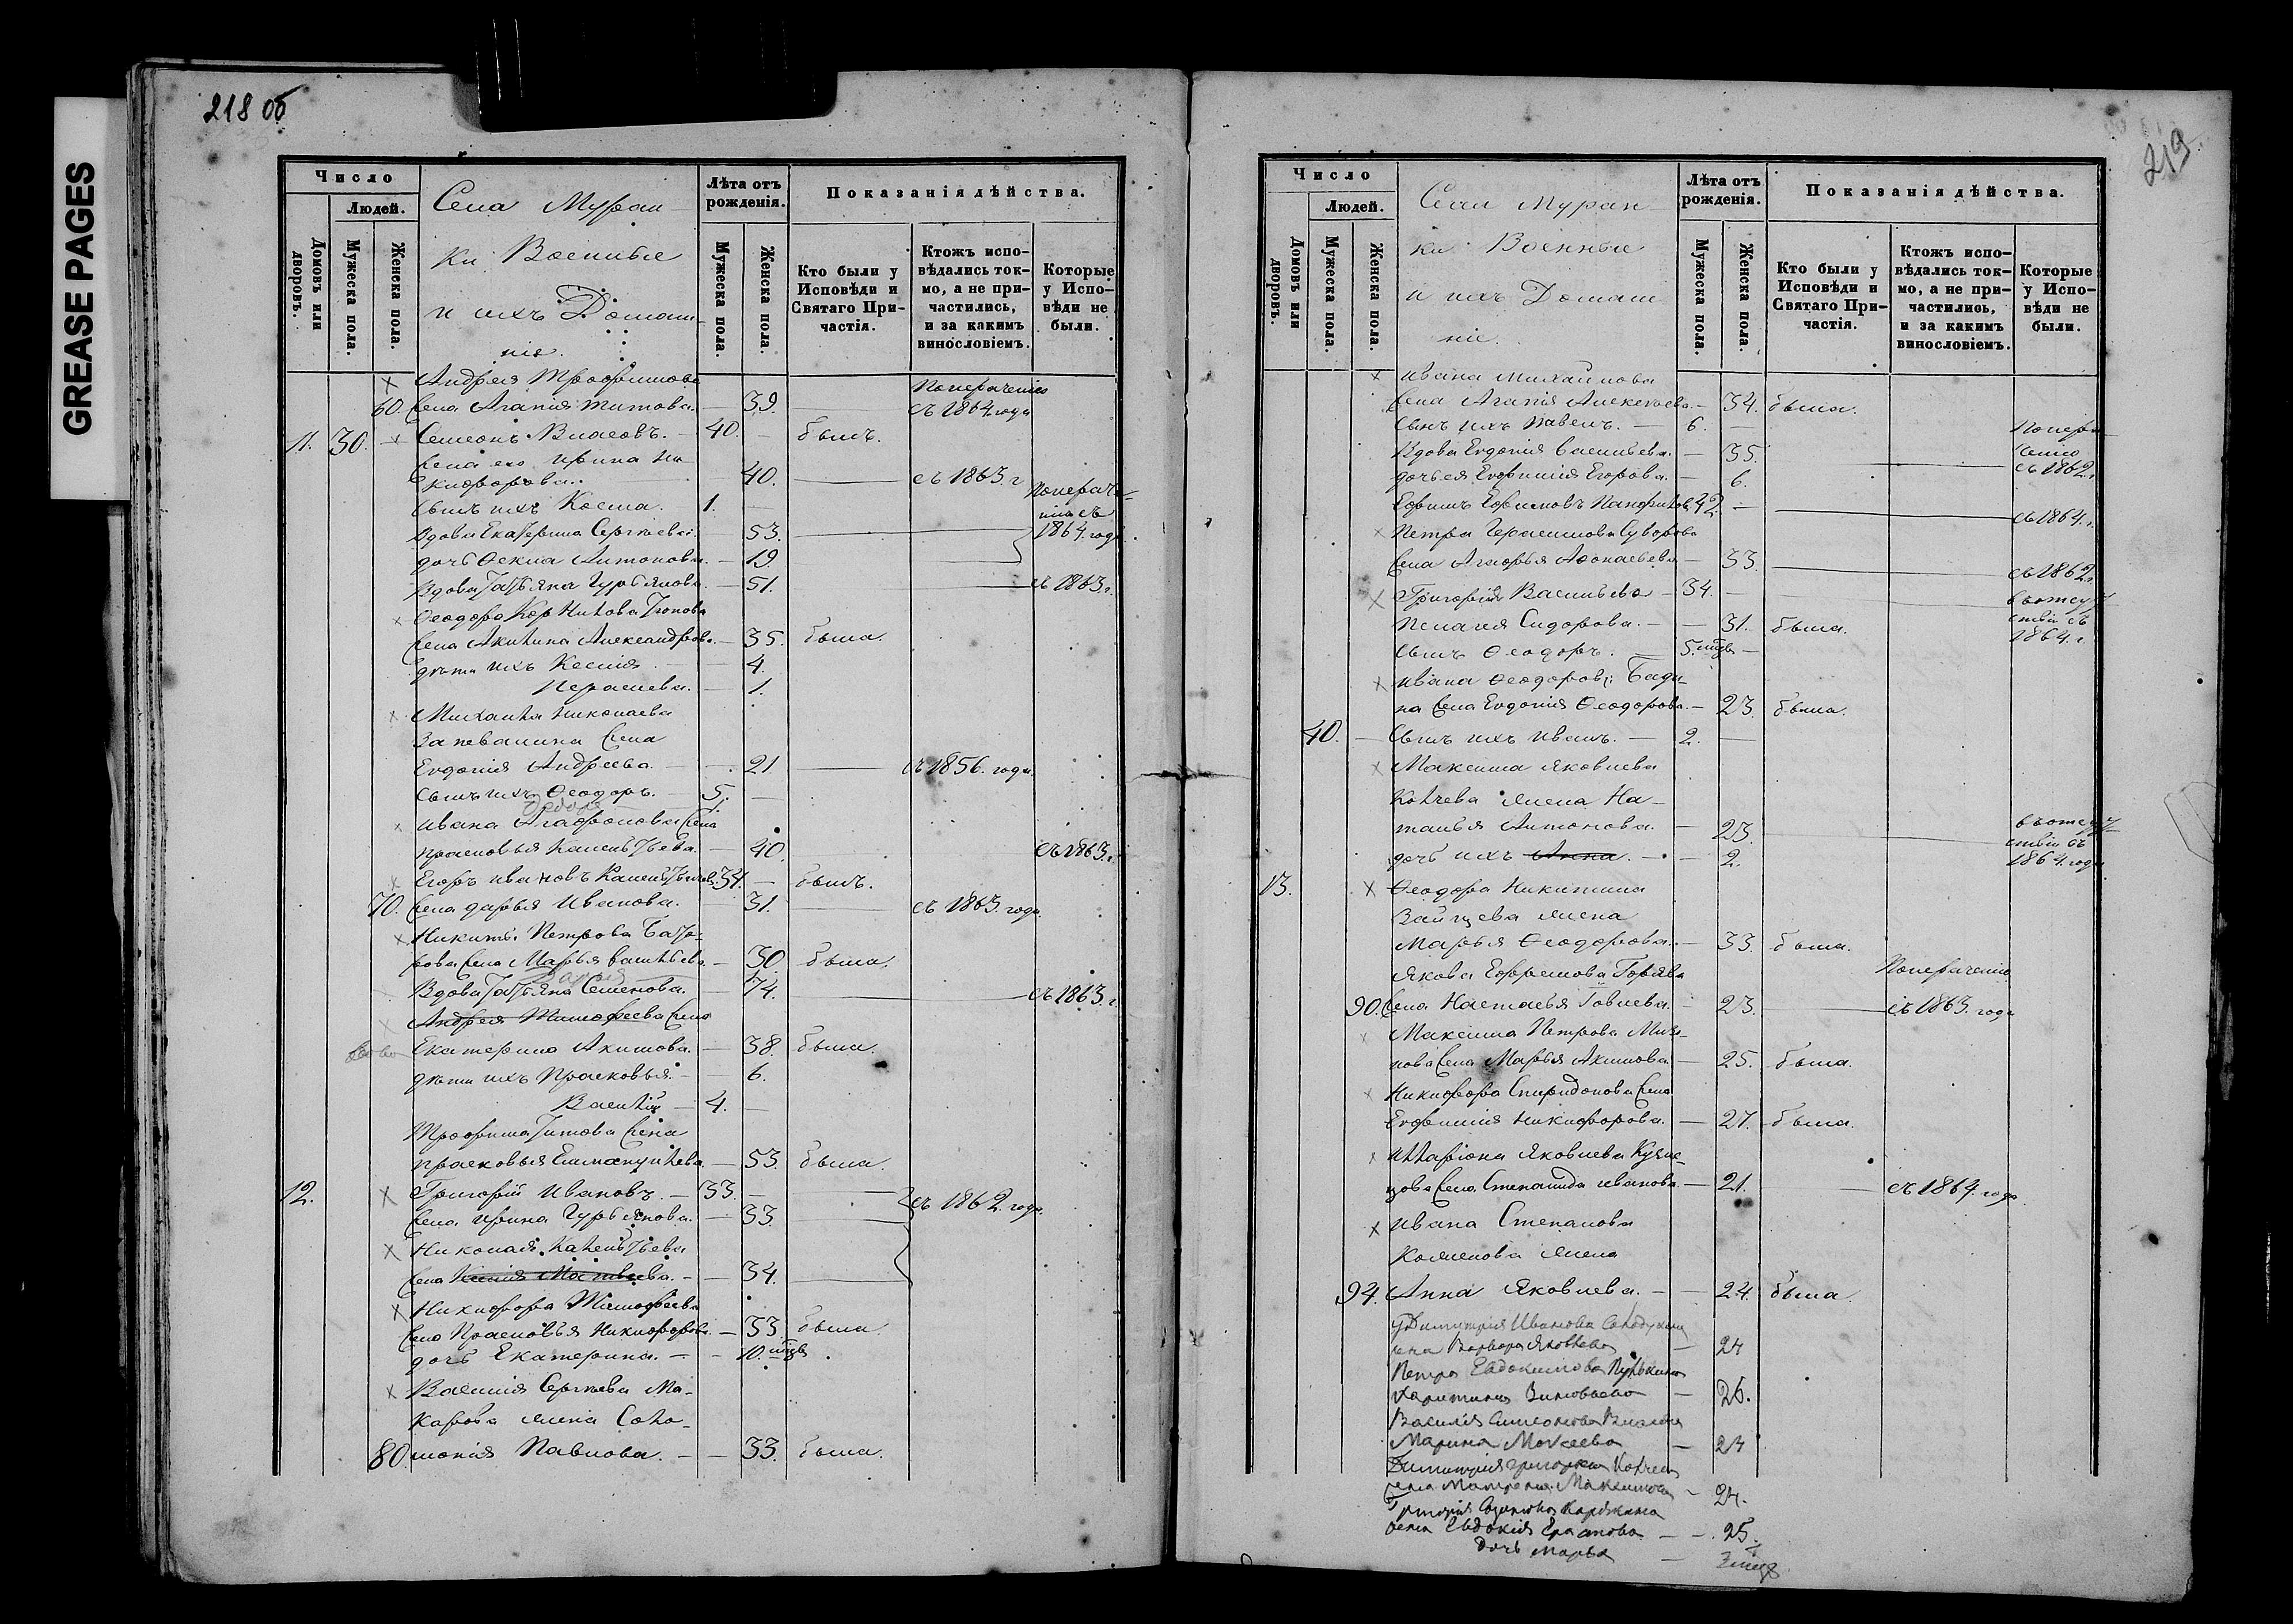 GREASE PAGES
218 об
Число
Людей.
Домовъ или дворовъ.
Мужеска пола.
Женска пола.
Села Муран
ки Военные
и ихъ Домаш
ніе.
Лѣта отъ рожденія.
Мужеска пола.
Женска пола.
Показанія дѣйства.
Кто были у Исповѣди и Святаго Причастія.
Ктожъ исповѣдались токмо, а не причастились, и за какимъ винословіемъ.
Которые у Исповѣди не были.
Андрея Трофимова
60. жена Агапія Титова. 39. с 1864 года
11. 30. Семенъ Власовъ. 40. былъ.
жена его Ирина Ни
кифорова. 40. съ 1863. г
сынъ ихъ Косма. 1.
вдова Екатерина Сергеева 53. 1864. года
дочь Фекла Антонова. 19.
вдова Татьяна Гурьянова. 51. съ 1863 г.
Феодора Корнилова
жена Акилина Александрова. 35. была.
дѣти ихъ Ксенія 4.
1.
Михаила Николаева
Запевалина жена
Евдокія Андреева. 21 съ 1856. года.
сынъ ихъ Феодоръ. 5.
Ивана Агафонова жена
Прасковья Савельева. 40. съ 1863. г
Егоръ Ивановъ 34. былъ.
70. жена Дарья Иванова. 31. съ 1863. года
Никиты Петрова
жена Марья Васильева 30 была.
Вдова Татьяна Семенова. 74. съ 1863. г.
Андрея Тимофеева жена
Екатерина Акимова. 38. была.
дѣти ихъ Прасковья. 6.
Василій 4.
Трофима Титова жена
Прасковья 53. была.
12. Григорій Ивановъ. 33. съ 1862. года.
жена Ирина Гурьянова. 33.
Николая Савельева
жена Ксенія Матвеева. 34.
Никифора Тимофеева
жена Прасковья Никифорова 33. была.
дочь Екатерина. 10. мцвъ
Василія Сергеева Ма-
карова жена Соло-
80. монія Павлова. 33. была.
219.
Число
Людей.
Домовъ или дворовъ.
Мужеска пола.
Женска пола.
Села Муран
ки Военные
и ихъ Домаш
ніе.
Лѣта отъ рожденія.
Мужеска пола.
Женска пола.
Показанія дѣйства.
Кто были у Исповѣди и Святаго Причастія.
Ктожъ исповѣдались токмо, а не причастились, и за какимъ винословіемъ.
Которые у Исповѣди не были.
Ивана Михайлова
жена Агапія Алексеева. 34. была.
сынъ ихъ Павелъ. 6.
Вдова Евдокія Васильева. 35.
дочь ея Евфимія Егорова. 6. съ 1862 г.
Ефимъ Ефимовъ 42. съ 1864. г.
Петра Герасимова Суворова
жена 33. съ 1862 г.
Григорій Васильевъ 34. въ отсут
ствіи съ
Пелагея Сидорова. 31. была. 1864. г.
сынъ Феодоръ. 5. мцвъ
Ивана Феодорова
жена Евдокія Феодорова. 23. была.
40. сынъ ихъ Иванъ. 2.
Максима Яковлева
жена На-
талья Антонова. 23. въ отсут
ствіи съ
дочь ихъ Анна. 2. 1864. года
13. Феодора Никитина
Зайцева жена
Марья Феодорова. 33. была.
Якова Ефремова
90. жена Настасья 23. съ 1863. года
Максима Петрова
жена Марья Акимова. 25. была.
Никифора Спиридонова жена
Евфимія Никифорова. 27. была.
Иларіона Яковлева Кузне
цова жена Степанида Иванова 21. съ 1864. года
Ивана Степанова
жена
94. Анна Яковлева. 24. была.
Димитрія Иванова
жена Варвара Яковлева 24
Петра Евдокимова
Харитина 26.
Василія
Марина 24
Димитрія
жена Матрена Максимова 24.
Григорія
жена Евдокія 25.
дочь Марья 3 мцв